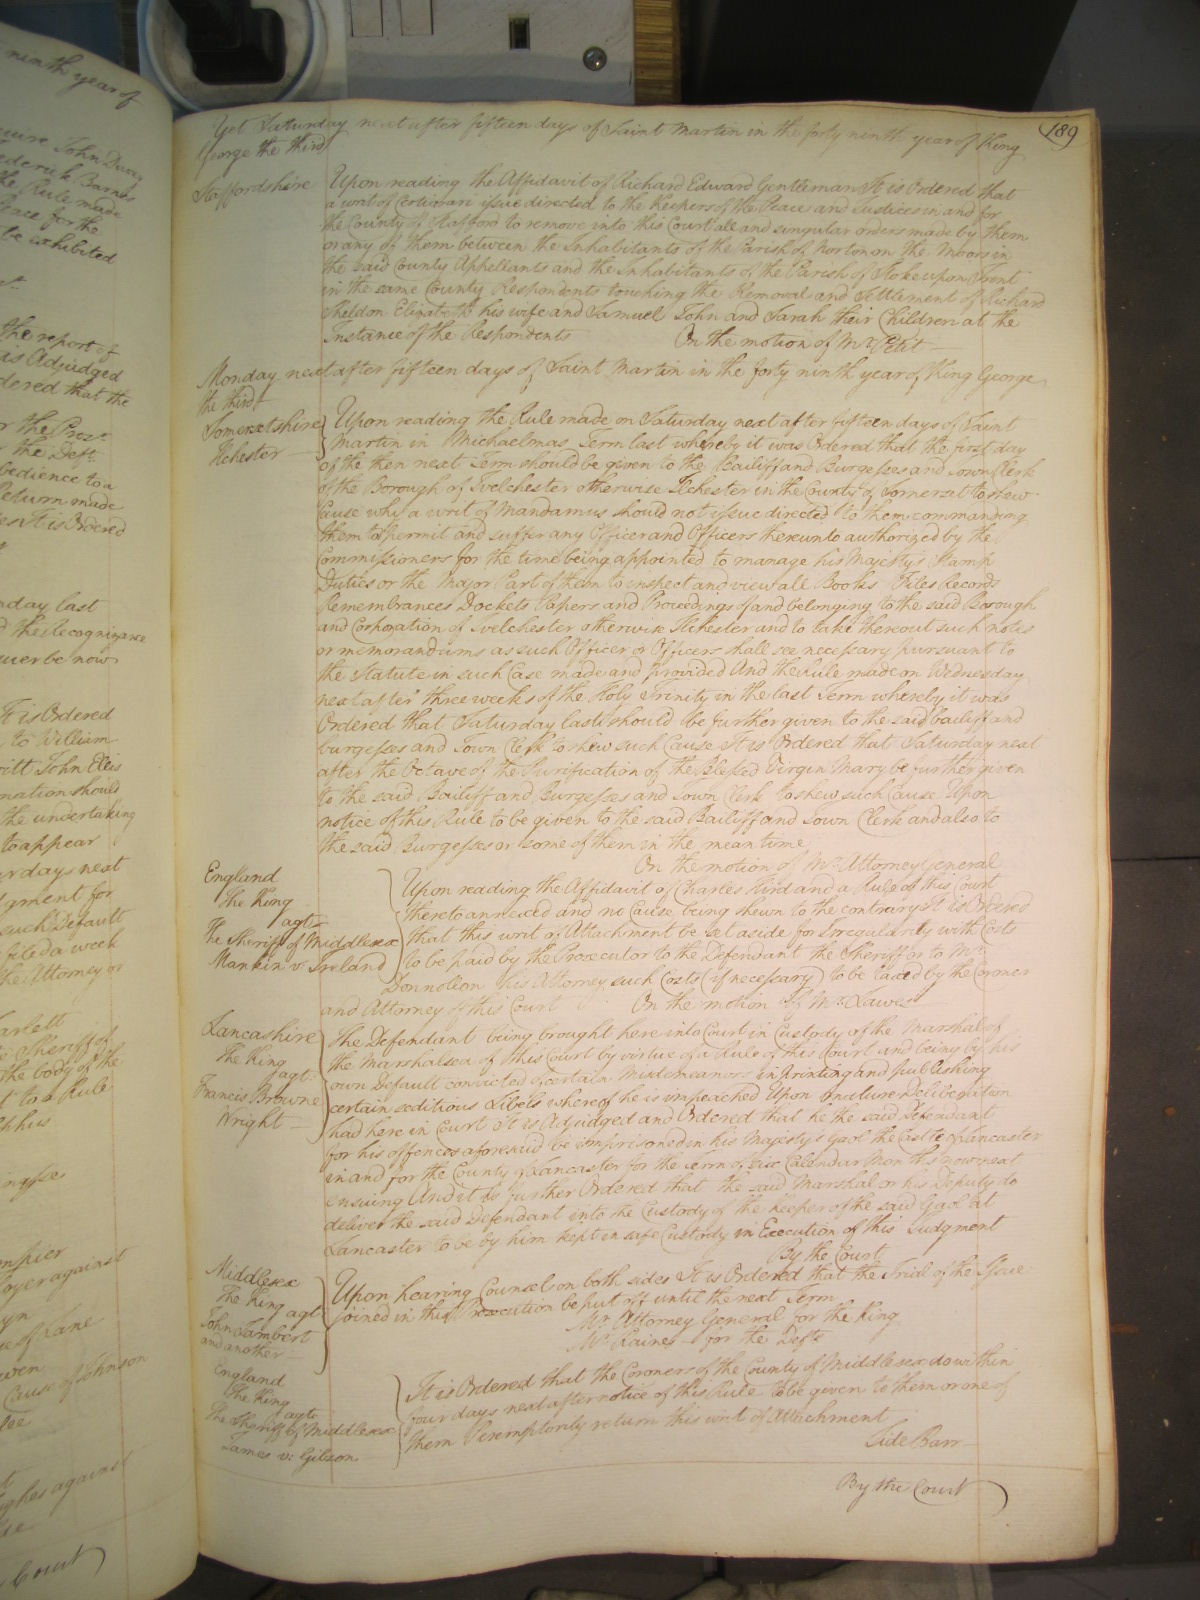 189
Yet Saturday next after fifteen days of Saint Martin in the forty ninth year of King
George the third
Staffordshire
Upon reading the Affidavit of Richard Edward Gentleman It is Ordered that
a writ of Certiorari issue directed to the Keepers of the Peace and Justices in and for
the County of Stafford to remove into this Court all and singular orders made by them
or any of them between the Inhabitants of the Parish of Norton on the Moors in
the said County Appellants and the Inhabitants of the Parish of Stoke upon Trent
in the same County Respondents touching the Removal and Settlement of Richard
Sheldon Elizabeth his wife and Samuel John and Sarah their Children at the
Instance of the Respondents On the motion of Mr. Petit
Monday next after fifteen days of Saint Martin in the forty ninth year of King George
the third
Somersetshire
Ilchester
Upon reading the Rule made on Saturday next after fifteen days of Saint
Martin in Michaelmas Term last whereby it was Ordered that the first day
of the then next Term should be given to the Bailiff and Burgesses and Town Clerk
of the Borough of Ivelchester otherwise Ilchester in the County of Somerset to shew
Cause why a writ of Mandamus should not issue directed to them commanding
them to permit and suffer any Officer and Officers thereunto authorized by the
Commissioners for the time being appointed to manage his Majesty's Stamp
Duties or the Major Part of them to inspect and view all Books Files Records
Remembrances Dockets Papers and Proceedings of and belonging to the said Borough
and Corporation of Ivelchester otherwise Ilchester and to take thereout such notes
or memorandums as such Officer or Officers shall see necessary pursuant to
the Statute in such Case made and provided And the Rule made on Wednesday
next after three weeks of the Holy Trinity in the last Term whereby it was
Ordered that Saturday last should be further given to the said bailiff and
burgesses and Town Clerk to shew such Cause It is Ordered that Saturday next
after the Octave of the Purification of the Blessed Virgin Mary be further given
to the said Bailiff and Burgesses and Town Clerk to shew such Cause Upon
notice of this Rule to be given to the said Bailiff and Town Clerk and also to
the said Burgesses or some of them in the mean time
On the motion of Mr. Attorney General
England
The King
agt.
The Sheriff of Middlesex
Mankin v. Ireland
Upon reading the Affidavit of Charles Hird and a Rule of this Court
thereto annexed and no Cause being shewn to the contrary It is Ordered
that this writ of Attachment be set aside for Irregularity with Costs
to be paid by the Prosecutor to the Defendant the Sheriff or to Mr.
his Attorney such Costs (if necessary) to be taxed by the Coroner
and Attorney of this Court On the motion of Mr. Lawes
Lancashire
The King
agt.
Francis Browne
Wright
The Defendant being brought here into Court in Custody of the Marshal of
the Marshalsea of this Court by virtue of a Rule of this Court and being by his
own Default convicted of certain Misdemeanors in printing and publishing
certain seditious Libels whereof he is impeached Upon mature Deliberation
had here in Court It is Adjudged and Ordered that he the said Defendant
for his offences aforesaid be imprisoned in his Majesty's Gaol the Castle of Lancaster
in and for the County of Lancaster for the Term of Six Calendar Months now next
ensuing And it is further Ordered that the said Marshal or his Deputy do
deliver the said Defendant into the Custody of the Keeper of the said Gaol at
Lancaster to be by him kept in safe Custody in Execution of this Judgment
By the Court
Middlesex
The King agt.
John Lambert
and another
Upon hearing Counsel on both sides It is Ordered that the Trial of the Issue
joined in this Prosecution be put off until the next Term
Mr. Attorney General for the King
Mr. Raine for the Defts
England
The King
agt.
The Sheriff of Middlesex
James v. Gibson
It is Ordered that the Coroner of the County of Middlesex do within
four days next after notice of this Rule to be given to them or one of
them Peremptorily return this writ of Attachment
Side Barr
By the Court